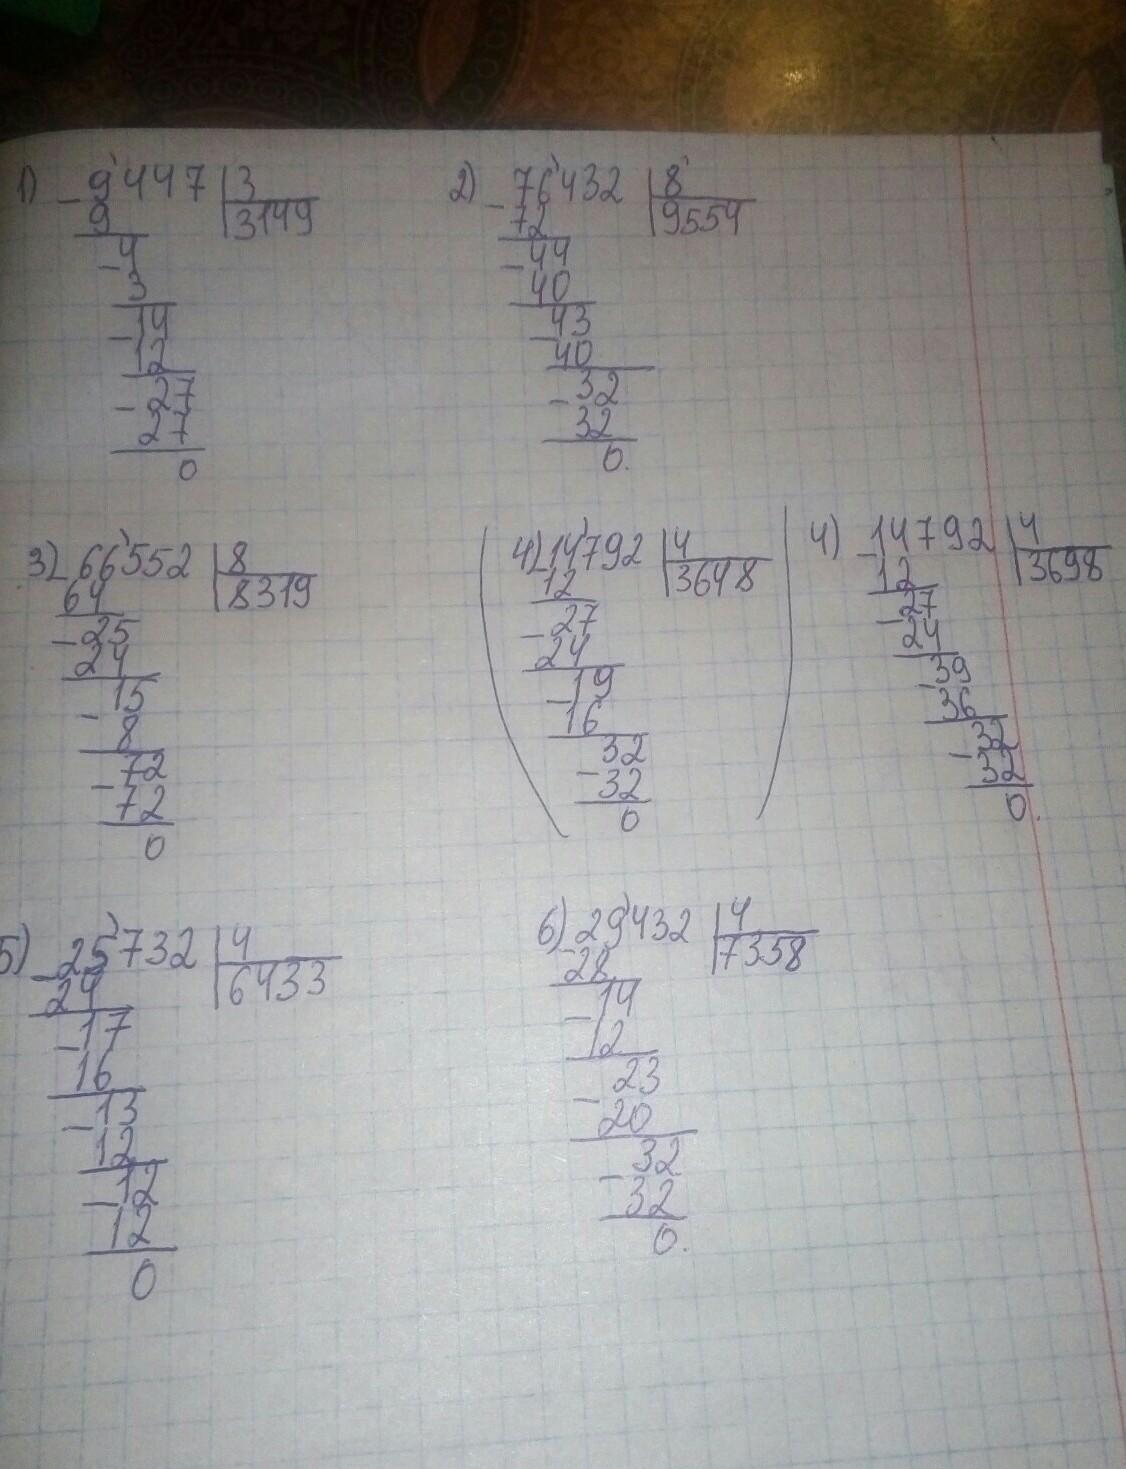 1) 9'447 | 3
- 9 | 3149
- 4
3
- 14
12
- 27
27
0
2) 76'432 | 8
- 72 | 9554
- 44
40
- 43
40
- 32
32
0.
3) - 66'552 | 8
64 | 8319
- 25
24
- 15
8
- 72
72
0
(4) - 14'792 | 4
12 | 3648
- 27
24
- 19
16
- 32
32
0)
4) - 14792 | 4
12 | 3698
- 27
24
- 39
36
- 32
32
0.
5) - 25'732 | 4
24 | 6433
- 17
16
- 13
12
- 12
12
0
6) 29'432 | 4
- 28 | 7358
- 14
12
- 23
20
- 32
32
0.